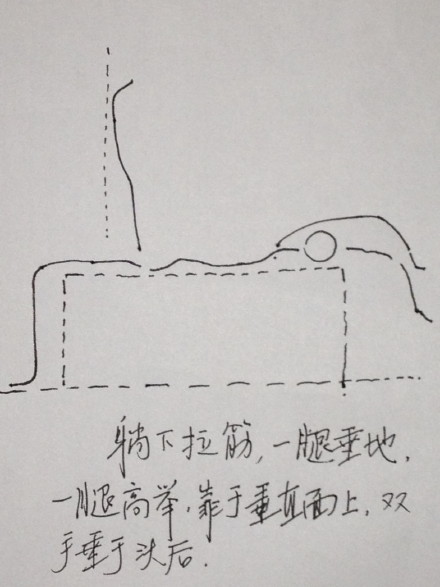 躺下拉筋,一腿垂地,
一腿高举,靠于垂直面上,双
手垂于头后.